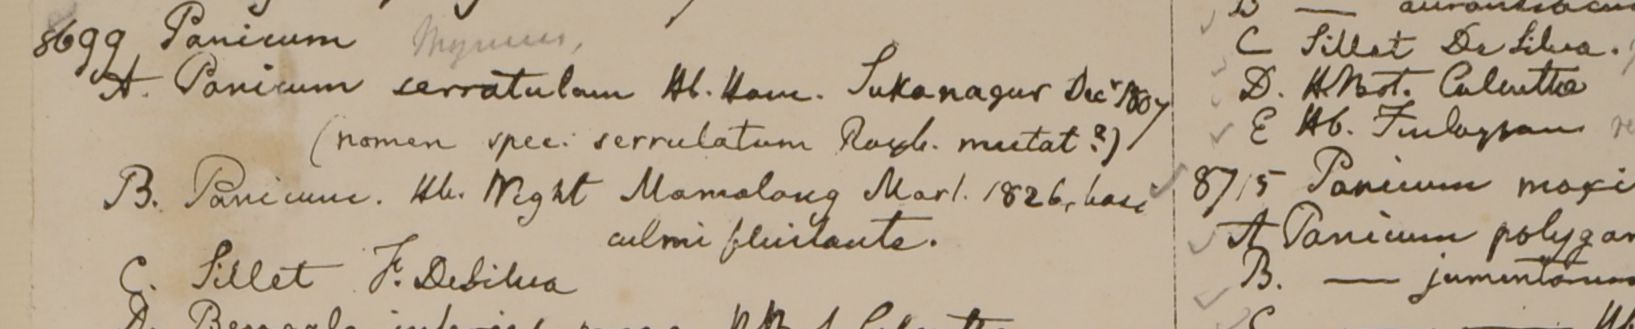 8699 Panicum
A. Panicum serratulum Hb. Ham. Sukanagur Decr 1807
(nomen spec: serrulatum Roxb. mutat?)
B. Panicum. Hb. Wight Mamalong Marl. 1826, basi
culmi fluitante.
C. Sillet F. DeSilva
D.
B —
C Sillet De Silva.
D. HBot. Calcutta
E Hb. Finlayson
8715 Panicum maxi
A Panicum polygam
B. — jumentorum